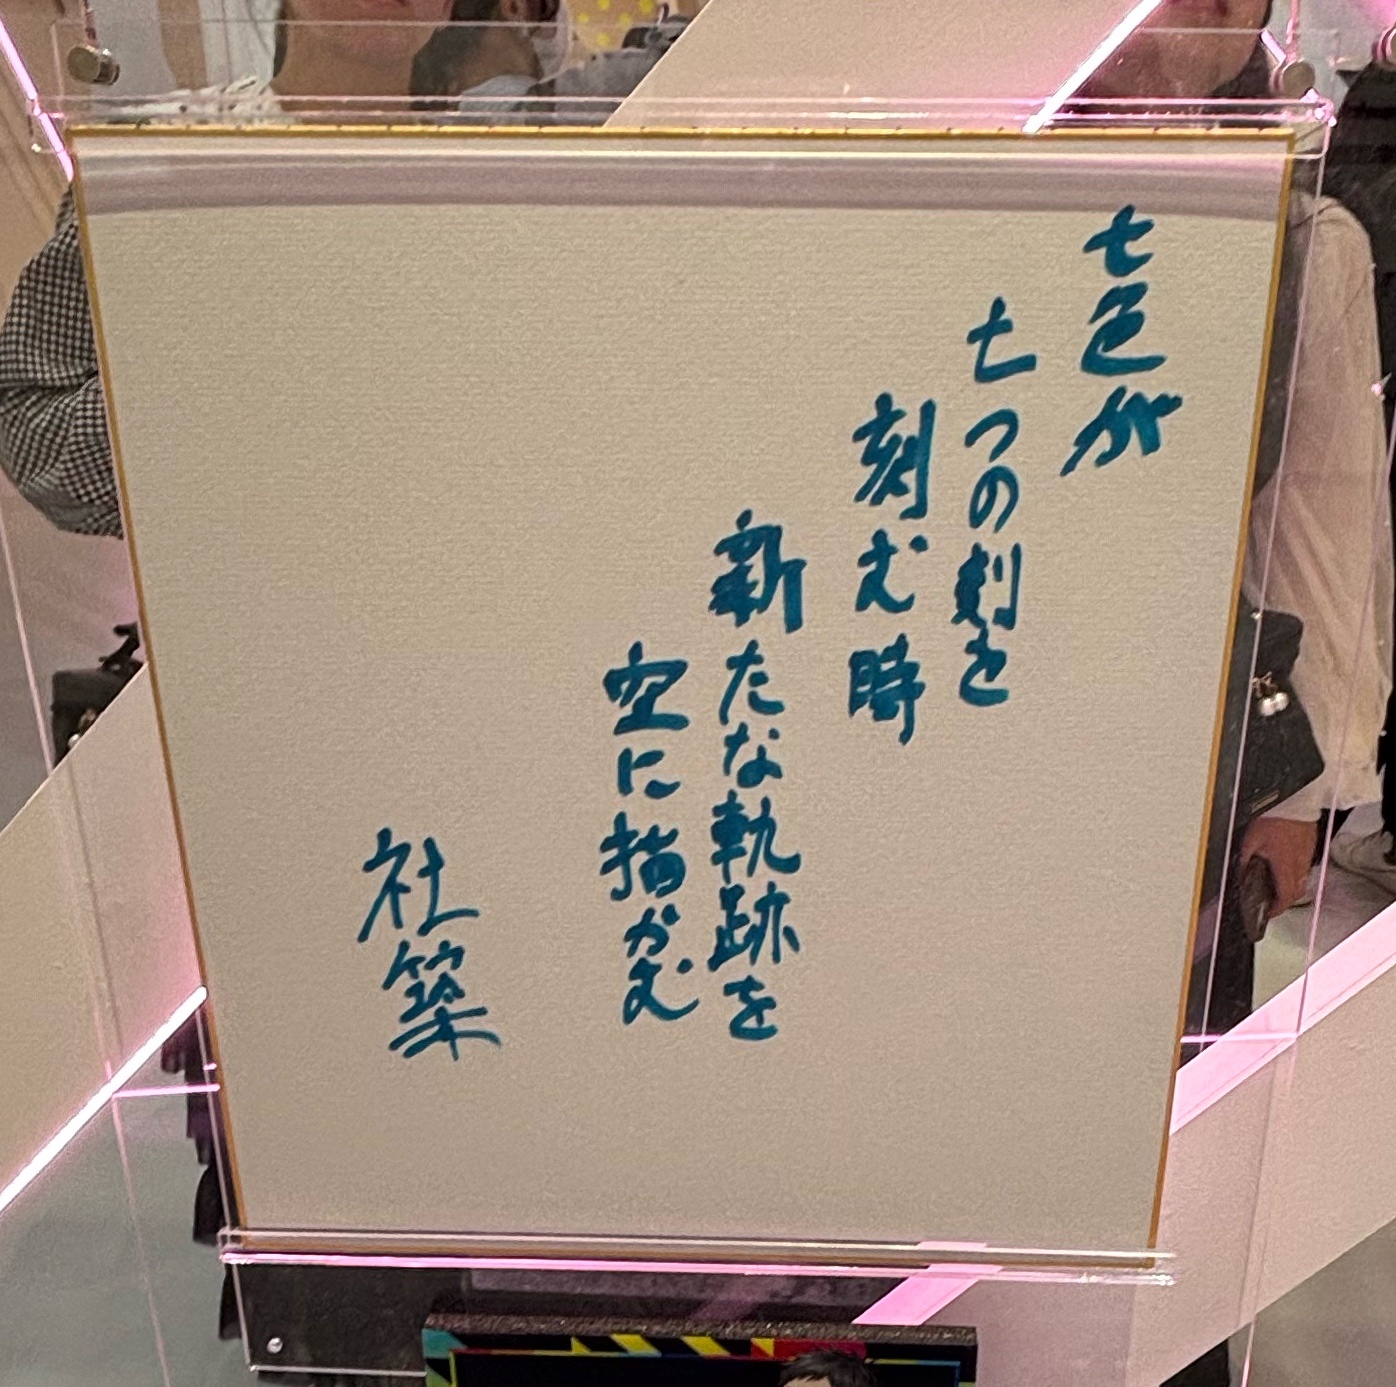 七色が
七つの刻を
刻む時
新たな軌跡を
空に描かむ
社築